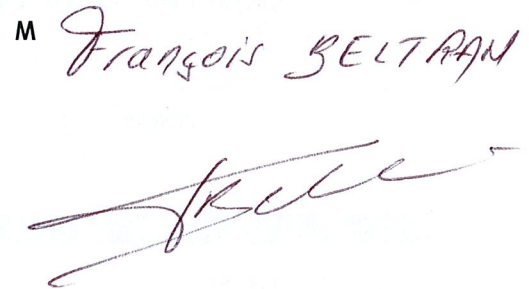 M François BELTRAN